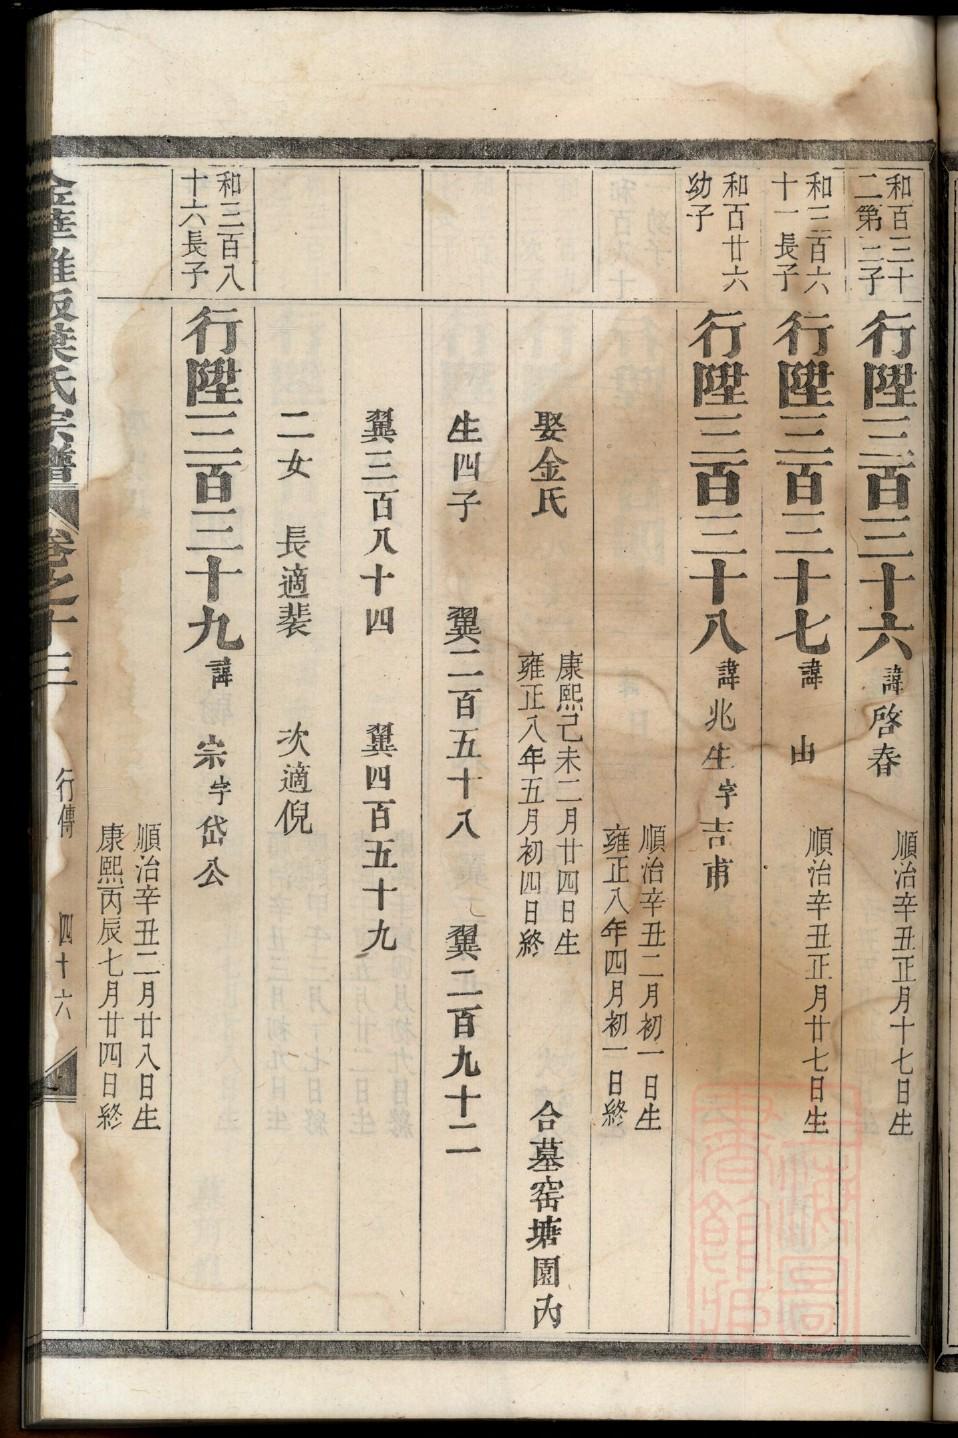 和百三十
二第二子
行陞三百三十六 諱啓春 順治辛丑正月十七日生
和三百六
十一長子
行陞三百三十七 諱 山 順治辛丑正月廿七日生
和百廿六
幼子
行陞三百三十八 諱兆生 字吉甫
順治辛丑二月初一日生
雍正八年四月初一日終
娶金氏
康熙己未二月廿四日生
雍正八年五月初四日終
合墓窑塘園內
生四子 翼二百五十八 翼二百九十二
翼三百八十四 翼四百五十九
二女 長適裴 次適倪
和三百八
十六長子
行陞三百三十九 諱 宗 字岱公
順治辛丑二月廿八日生
康熙丙辰七月廿四日終
葉氏宗譜 卷之十三 行傳 四十六